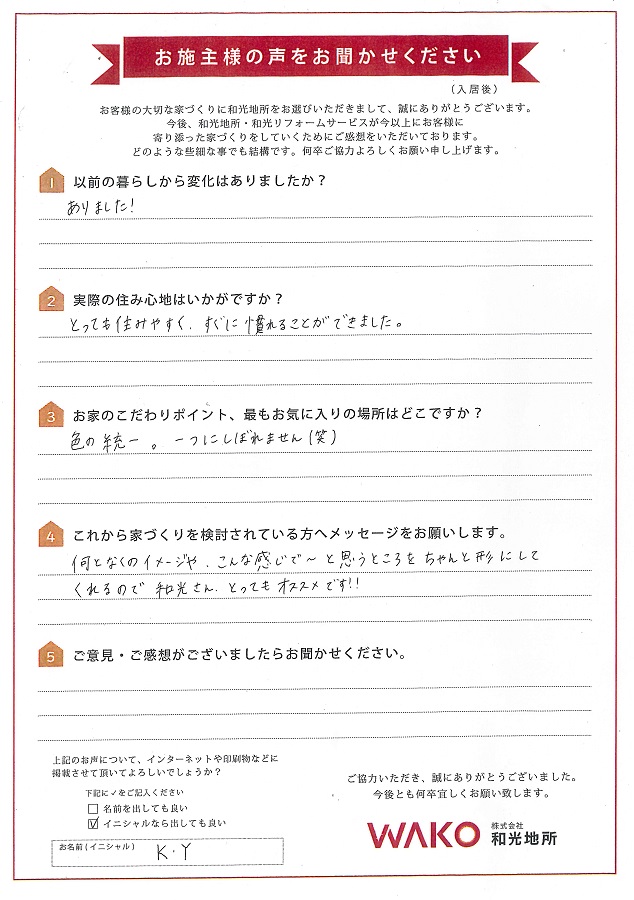 お施主様の声をお聞かせください
(入居後)
お客様の大切な家づくりに和光地所をお選びいただきまして、誠にありがとうございます。
今後、和光地所・和光リフォームサービスが今以上にお客様に
寄り添った家づくりをしていくためにご感想をいただいております。
どのような些細な事でも結構です。何卒ご協力よろしくお願い申し上げます。
1 以前の暮らしから変化はありましたか?
ありました!
2 実際の住み心地はいかがですか?
とっても住みやすく、すぐに慣れることができました。
3 お家のこだわりポイント、最もお気に入りの場所はどこですか?
色の統一。一つにしぼれません(笑)
4 これから家づくりを検討されている方へメッセージをお願いします。
何となくのイメージや、こんな感じで〜と思うところをちゃんと形にして
くれるので和光さん、とってもオススメです!!
5 ご意見・ご感想がございましたらお聞かせください。
上記のお声について、インターネットや印刷物などに
掲載させて頂いてよろしいでしょうか?
下記に✓をご記入ください
名前を出しても良い
イニシャルなら出しても良い
お名前(イニシャル) K.Y
ご協力いただき、誠にありがとうございました。
今後とも何卒宜しくお願い致します。
WAKO 株式会社 和光地所